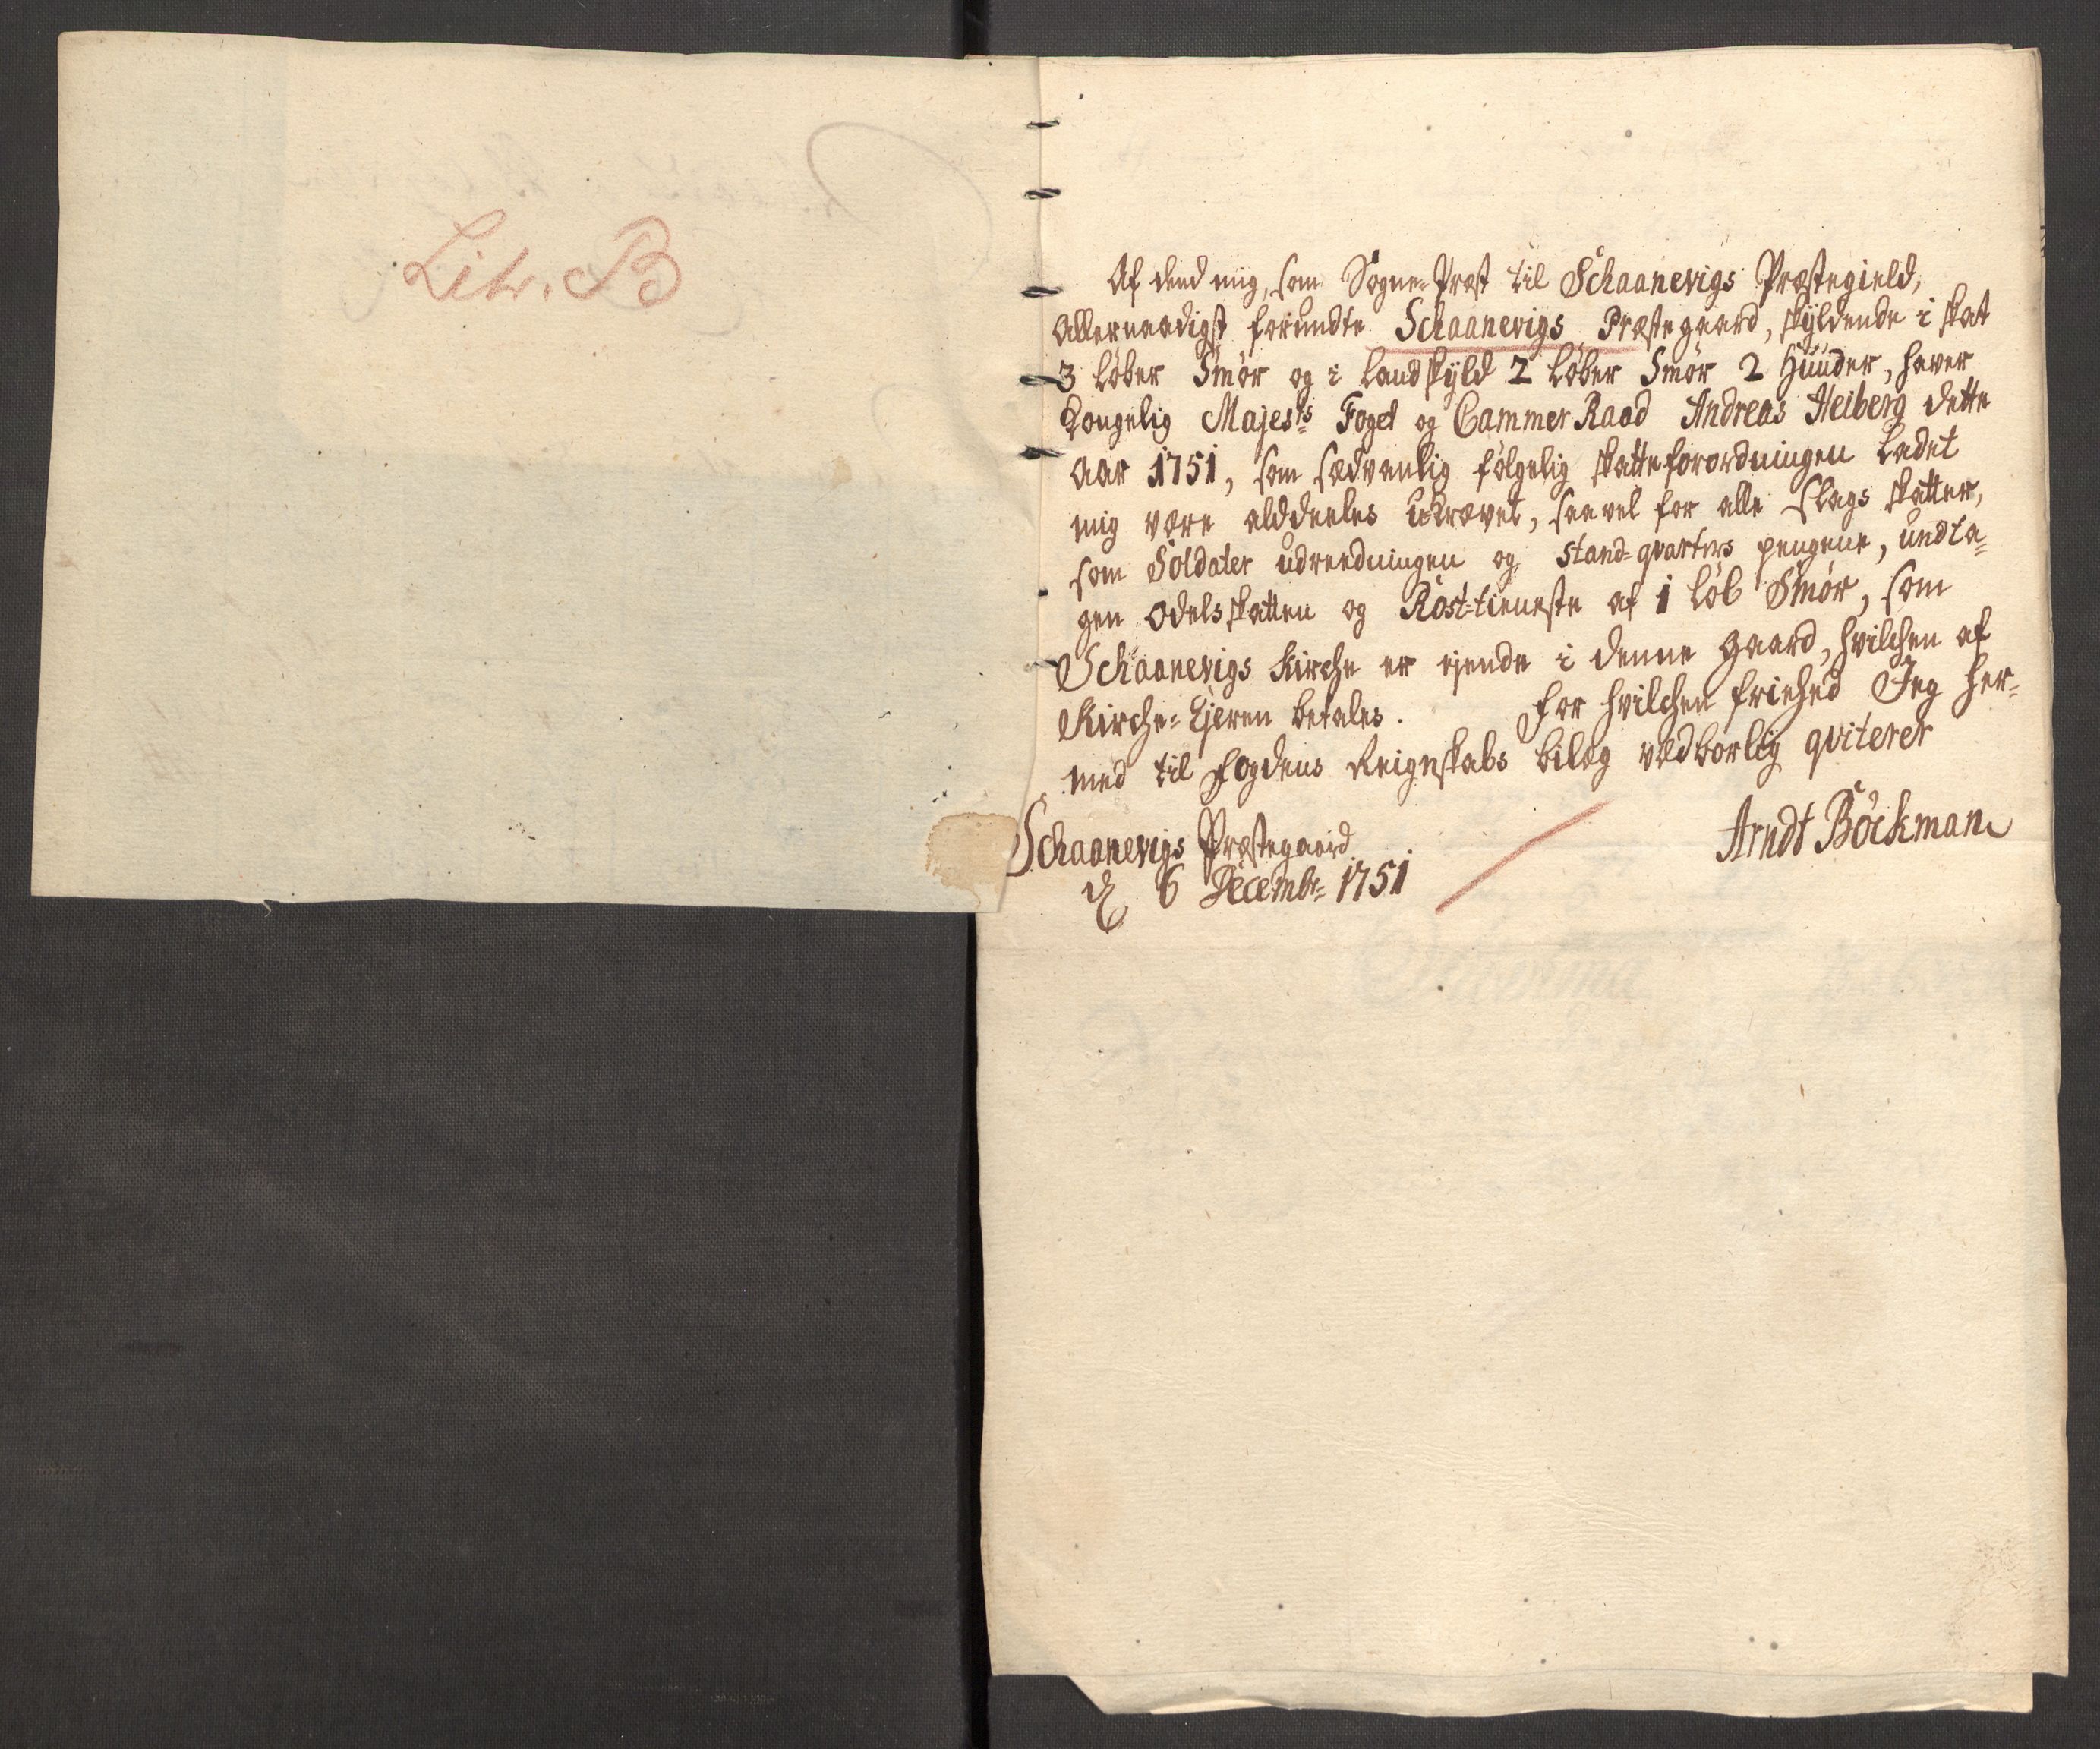 Litr. B
Af dend mig, som Sogne-Præst til Schaanevigs Præstegield,
Allernaadigst forundte Schaanevigs Præstegaard, skyldende i skat
3 Løber Smør og i Landskyld 2 Løber Smør 2 Huuder, haver
Kongelig Majests Foged og Cammer Raad Andreas Heiberg dette
Aar 1751, som sædvanlig følgelig skatteforordningen ladet
mig være alddeeles ukrævet, saavel for alle slags skatter,
som Soldater udreedningen og stand-qvarteers pengene, undta-
gen Odelsskatten og Rost-tieneste af 1 Løb Smør, som
Schaanevigs Kirche er ejende i denne gaard, hvilchen af
Kirche-Ejeren betales. For hvilchen friehed Jeg her-
med til Fogdens Reignskabs bilag vedbørlig qviterer
Schaanevigs Præstegaard
d 6 Decembr 1751
Arndt Böckman